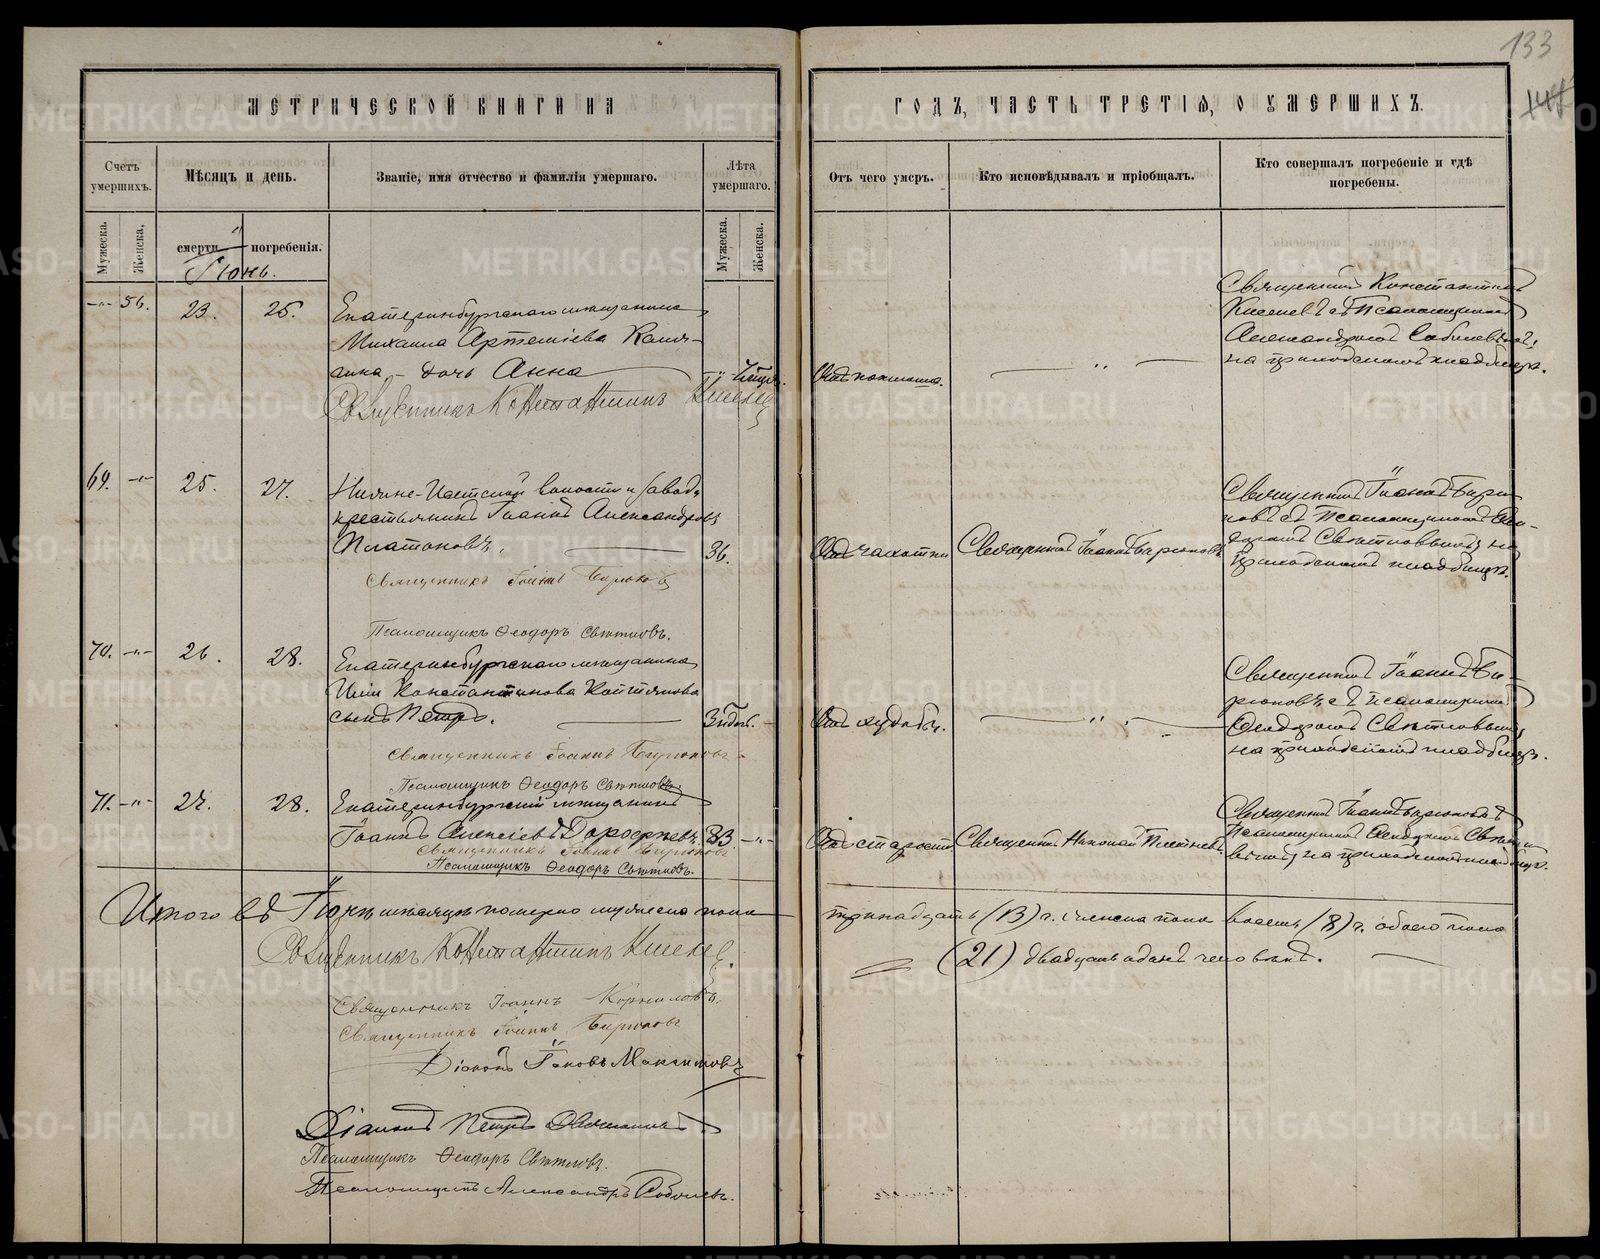 133
144
МЕТРИЧЕСКОЙ КНИГИ НА
ГОДЪ, ЧАСТЬ ТРЕТІЯ, О УМЕРШИХЪ.
Счетъ умершихъ.
Мѣсяцъ и день.
Званіе, имя отчество и фамилія умершаго.
Лѣта умершаго.
Отъ чего умеръ.
Кто исповѣдывалъ и пріобщалъ.
Кто совершалъ погребеніе и гдѣ погребены.
Мужеска.
Женска.
смерти
погребенія.
Мужеска.
Женска.
Іюнь.
-"- 56.
23.
25.
Екатеринбургскаго мѣщанина
Михаила Артеміева
дочь Анна
Священникъ Константинъ Киселев
Отъ поноса.
"
Священникъ Константинъ
Киселевъ съ Псаломщикомъ
Александромъ
на приходскомъ кладбищѣ.
69. -"-
25.
27.
Нижне-Исетской волости и завода
крестьянинъ Іоаннъ Александровъ
Платоновъ.
36.
Священникъ Іоаннъ Бирюковъ
Псаломщикъ Ѳеодоръ Свѣтловъ.
Отъ чахотки
Священникъ Іоаннъ Бирюковъ
Священникъ Іоаннъ Бирю-
ковъ съ Псаломщикомъ Ѳео-
доромъ Свѣтловымъ на
приходскомъ кладбищѣ.
70. -"-
26.
28.
Екатеринбургскаго мѣщанина
Константинова
сынъ Петръ.
Священникъ Іоаннъ Бирюковъ
Псаломщикъ Ѳеодоръ Свѣтловъ.
Отъ худобы.
"
Священникъ Іоаннъ Би-
рюковъ съ псаломщикомъ
Ѳеодоромъ Свѣтловымъ
на приходскомъ кладбищѣ.
71. -"-
27.
28.
Екатеринбургскій мѣщанинъ
Іоаннъ Алексіевъ
83. -"-
Священникъ Іоаннъ Бирюковъ
Псаломщикъ Ѳеодоръ Свѣтловъ.
Отъ старости
Священникъ Николай Плетневъ
Священникъ Іоаннъ Бирюковъ съ
Псаломщикомъ Ѳеодоромъ Свѣтло-
вымъ на приходскомъ кладбищѣ.
Итого въ Іюнѣ мѣсяцѣ померло мужеска пола
тринадцать (13) ч. женска пола восемь (8) ч. обоего пола
(21) двадцать одинъ человѣкъ.
Священникъ Константинъ Киселев.
Священникъ Іоаннъ Корниловъ.
Священникъ Іоаннъ Бирюковъ
Діаконъ Іаковъ Максимовъ
Діаконъ Петръ
Псаломщикъ Ѳеодоръ Свѣтловъ.
Псаломщикъ Александръ
METRIKI.GASO-URAL.RU